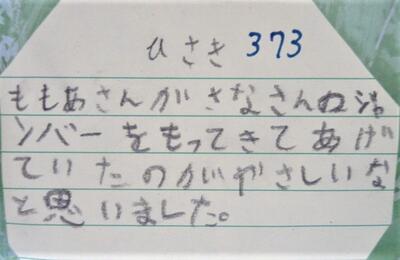 ひさき 373
ももあさんがさなさん
ンバーをもってきてあげ
ていたのがやさしいな
と思いました。